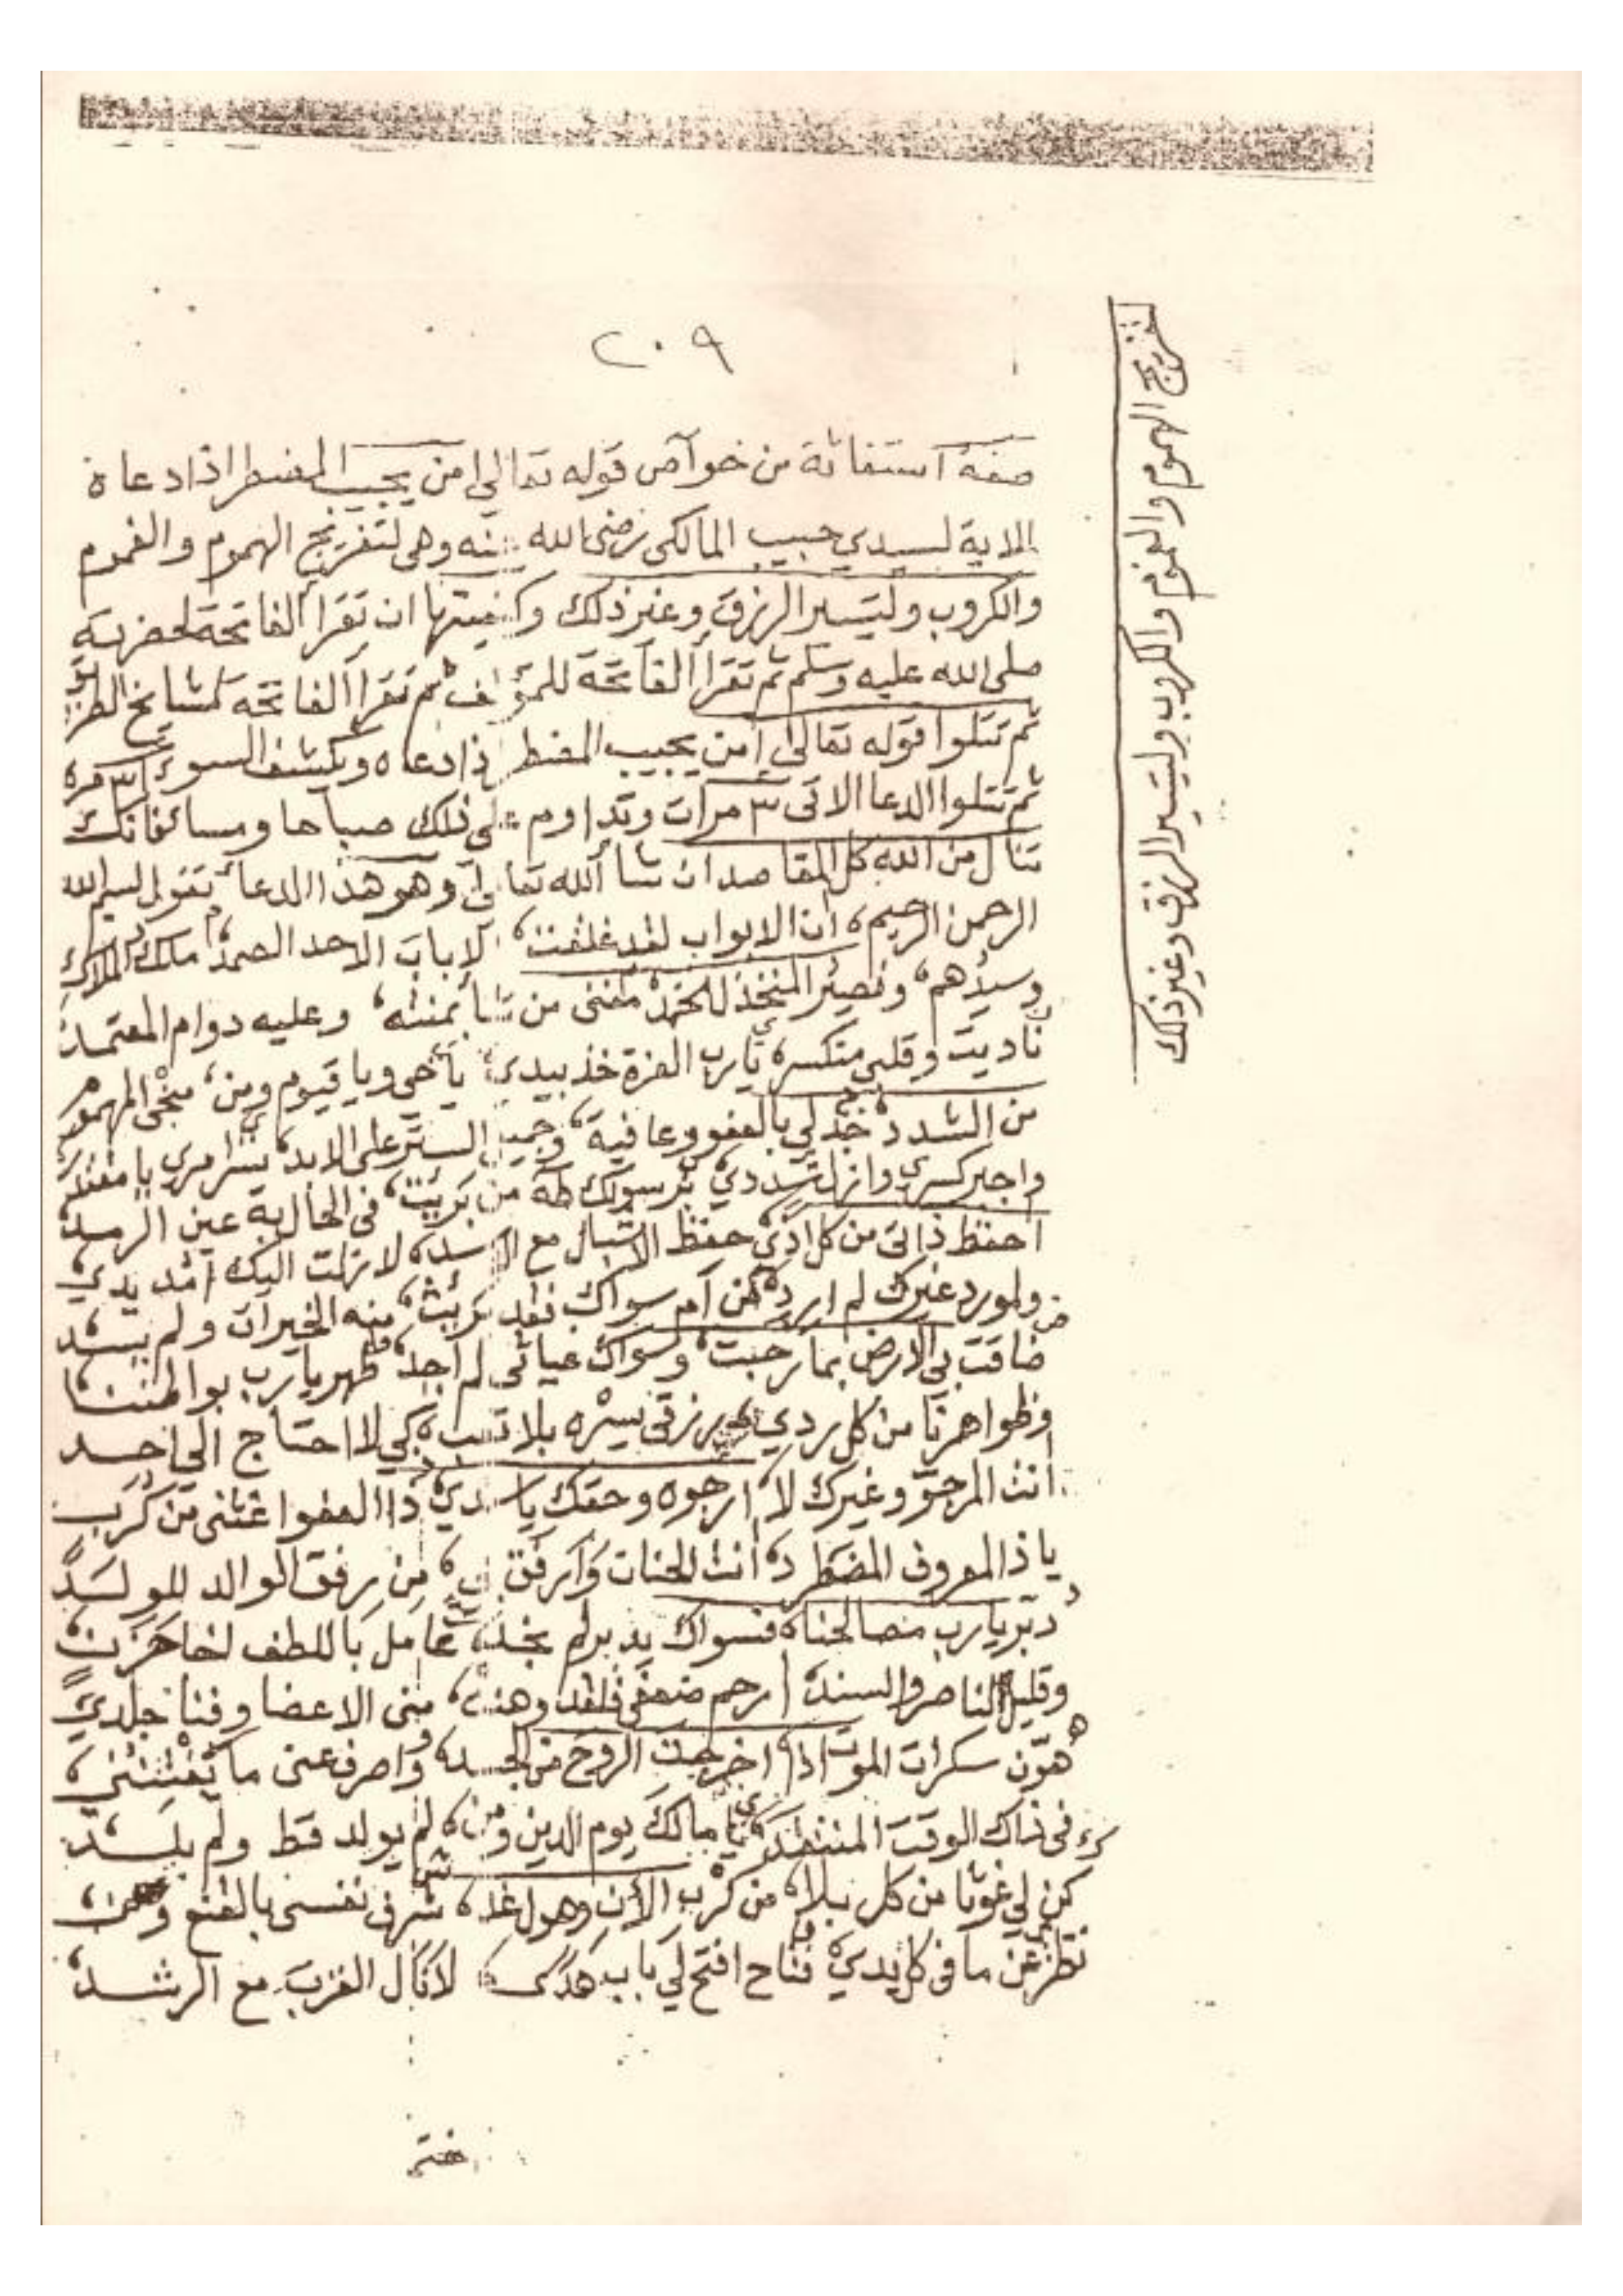 ٢٠٩
لتفريج الهموم والغموم والكروب وليتسير الرزق وغير ذلك
صفة استغاثة من خواص قوله تعالى امن يجيب المضطر اذا دعاه
الاية لسيدي حبيب المالكى رضى الله عنه وهى لتفريج الهموم والغموم
والكروب وليتسير الرزق وغير ذلك وكيفيتها ان تقرأ الفاتحة لحضرته
صلى الله عليه وسلم ثم تقرأ الفاتحة للمؤلف ثم تقرأ الفاتحة لمشايخ الطريق
ثم تتلوا قوله تعالى امن يجيب المضطر اذا دعاه ويكشف السوء مرة
ثم تتلوا الدعا الاتى ٣ مرات وتداوم على ذلك صباحا ومسا فانك
تنال من الله كل المقاصد ان شا الله تعالى وهو هذا الدعا تقول بسم الله
الرحمن الرحيم ان الابواب لقد غلقت الا باب الاحد الصمد ملك الملاك
وسيدهم ونصير مغنى من شا بمنته وعليه دوام المعتمد
ناديت وقلبى منكسر يارب العزة خذ بيدي ياحى ويا قيوم ومن منجى المهموم
من الشدد جد لي بالعفو وعافية وجميل الستر على الابد يسر امري يا
واجبر كسري وازل شددي برسولك طه من فى الحال به عين الرمد
احفظ ذاتى من كل اذى حفظ الاشبال مع الاسد لا زلت اليك امد يدي
ولمورد غيرك لم ارد من ام سواك فقد منه الخيرات ولم يسد
ضاقت بي الارض بما رحبت وسواك غياثى لم اجد طهر يارب بواطننا
وظواهرنا من كل ردي رزقى يسره بلا تعب كي لا احتاج الى احد
انت المرجو وغيرك لا ارجوه وحقك يا سندي ذا العفو اغثنى من كرب
يا ذا المعروف المضطرد انت الحنان وارفق بى من رفق الوالد للولد
دبر يارب مصالحنا فسواك يدبر لم نجد عامل باللطف لخا
وقليل الناصر والسند ارحم ضعفى فلقد وهنت منى الاعضا وفنا جلدي
هون سكرات الموت اذا خرجت الروح من الجسد واصرف عنى ما يفتننى
فى ذاك الوقت يا مالك يوم الدين ومن لم يولد قط ولم يلد
كن لي غوثا من كل بلا من كرب الأن وهول غد شرف نفسى بالقنع
نظرى عن ما فى كل يدي فتاح افتح لي باب هدى لانال القرب مع الرشد